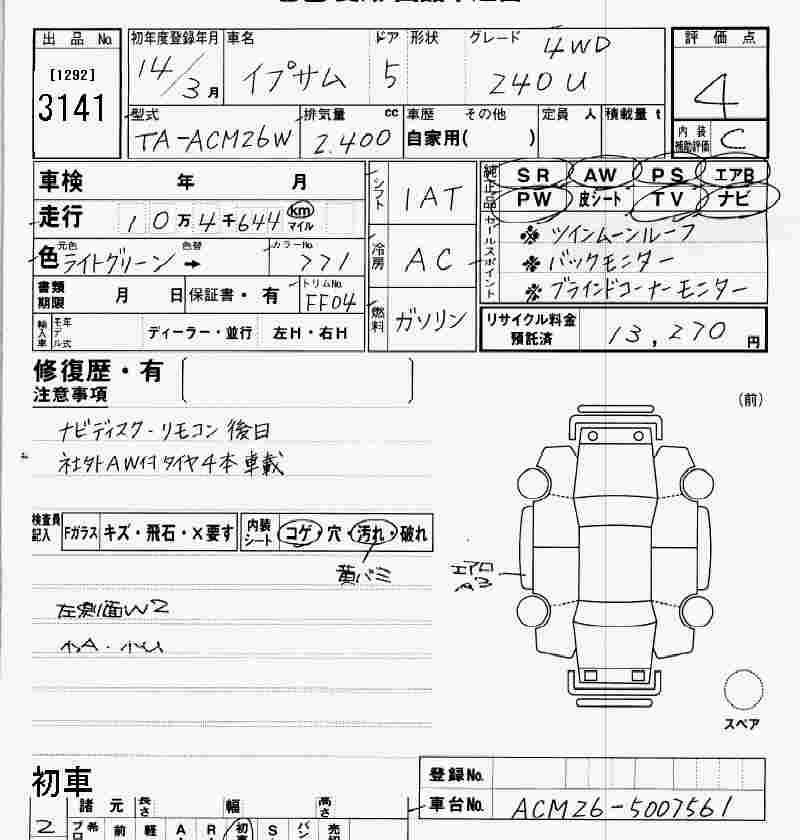 出品 No.
[1292]
3141
初年度登録年月 車名 ドア 形状 グレード
14/3月 イプサム 5 4WD
240U
評価点
4
内装補助評価 C
型式 排気量 cc 車歴 その他 定員 人 積載量 t
TA-ACM26W 2.400 自家用( )
車検 年 月
走行 10万4千644 km マイル
色 元色 色替 カラーNo.
ライトグリーン ➡ 771
書類期限 月 日 保証書・有 トリムNo. FF04
輸入車 モデル年式 ディーラー・並行 左H・右H
シフト IAT
冷房 AC
燃料 ガソリン
純正品 SR AW PS エアB
PW 皮シート TV ナビ
セールスポイント
※ ツインムーンルーフ
※ バックモニター
※ ブラインドコーナーモニター
リサイクル料金預託済 13,270 円
修復歴・有
注意事項
(前)
ナビディスク・リモコン後日
社外AW付タイヤ4本車載
検査員記入 Fガラス キズ・飛石・X要す 内装シート コゲ・穴・汚れ・破れ
黄バミ
エアロ
左側面W2
小A・小U
スペア
初車
登録No.
車台No. ACM26-5007561
諸元 長さ 幅 高さ
2